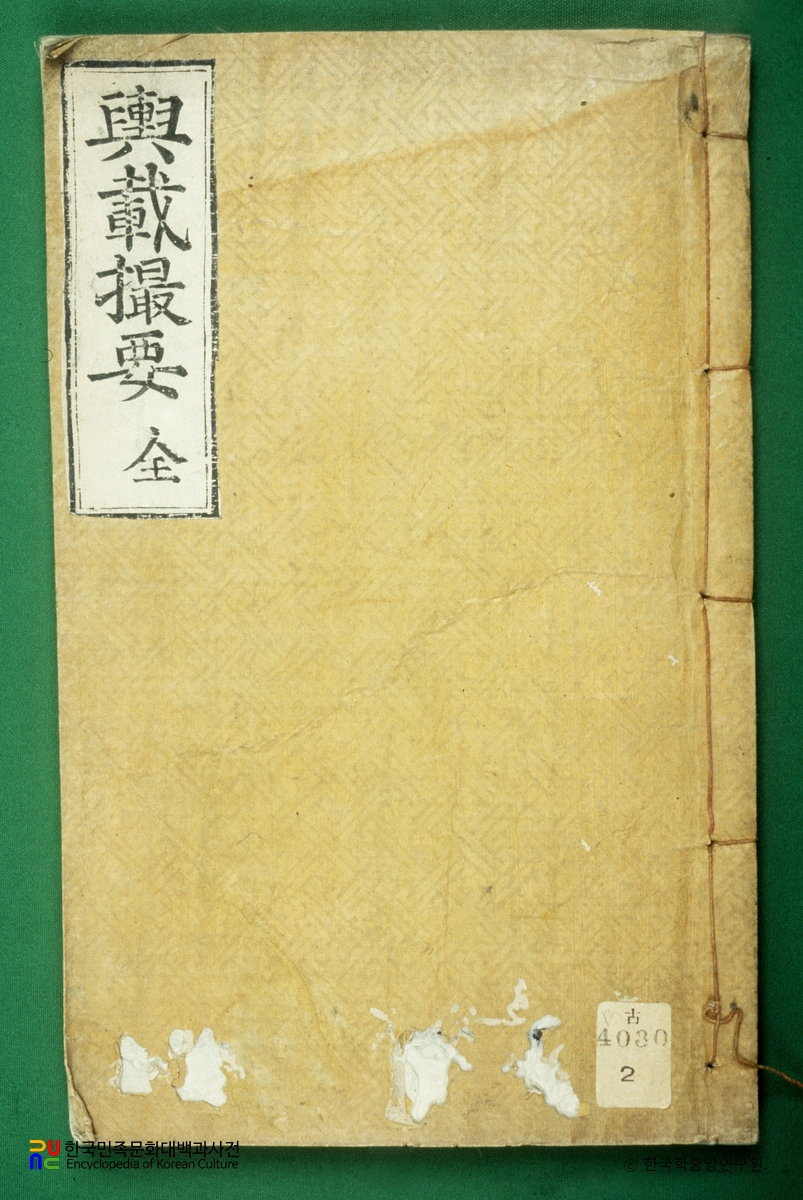 輿載撮要 全
古
4030
2
한국민족문화대백과사전
Encyclopedia of Korean Culture
© 한국학중앙연구원